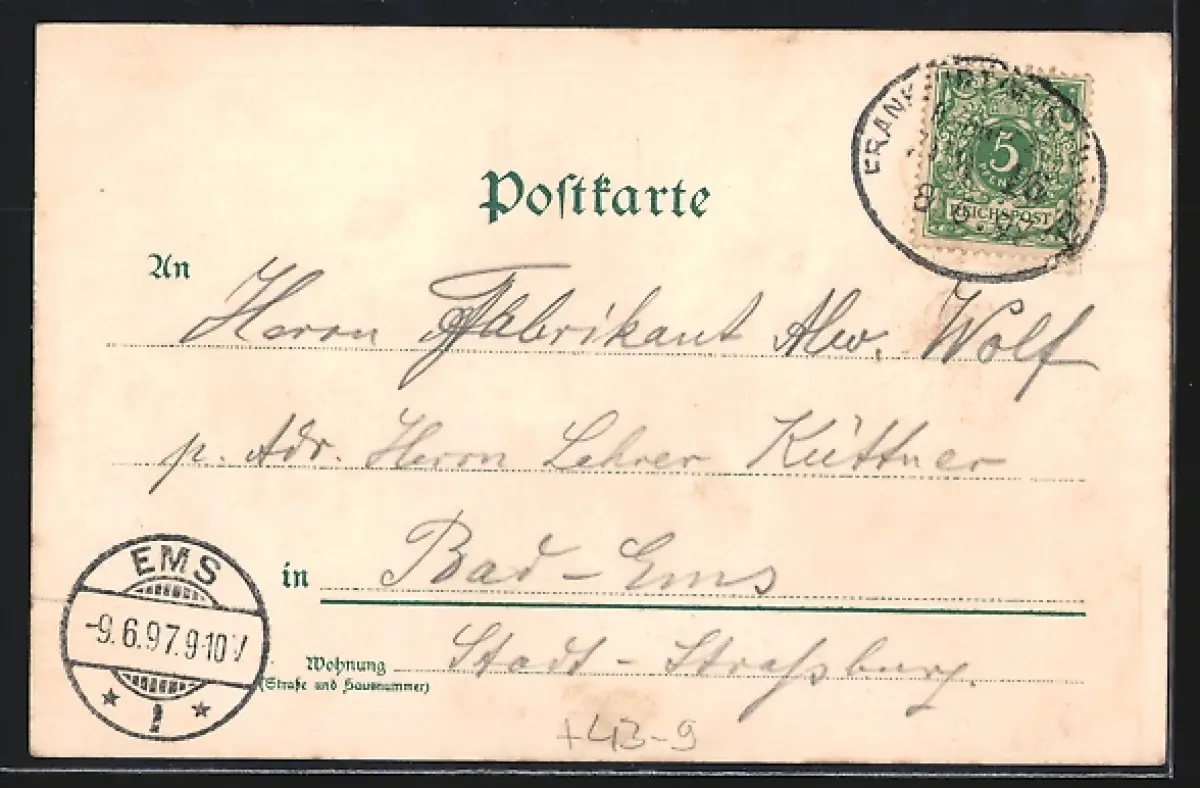 Postkarte
FRANK
5
PFENNIG
REICHSPOST
An
Herrn Fabrikant Alw. Wolf
p. Adr. Herrn Lehrer Küttner
in Bad-Ems
Wohnung Stadt-Straßburg.
(Straße und Hausnummer)
EMS
-9.6.97.9-10V
* 1 *
+43-9